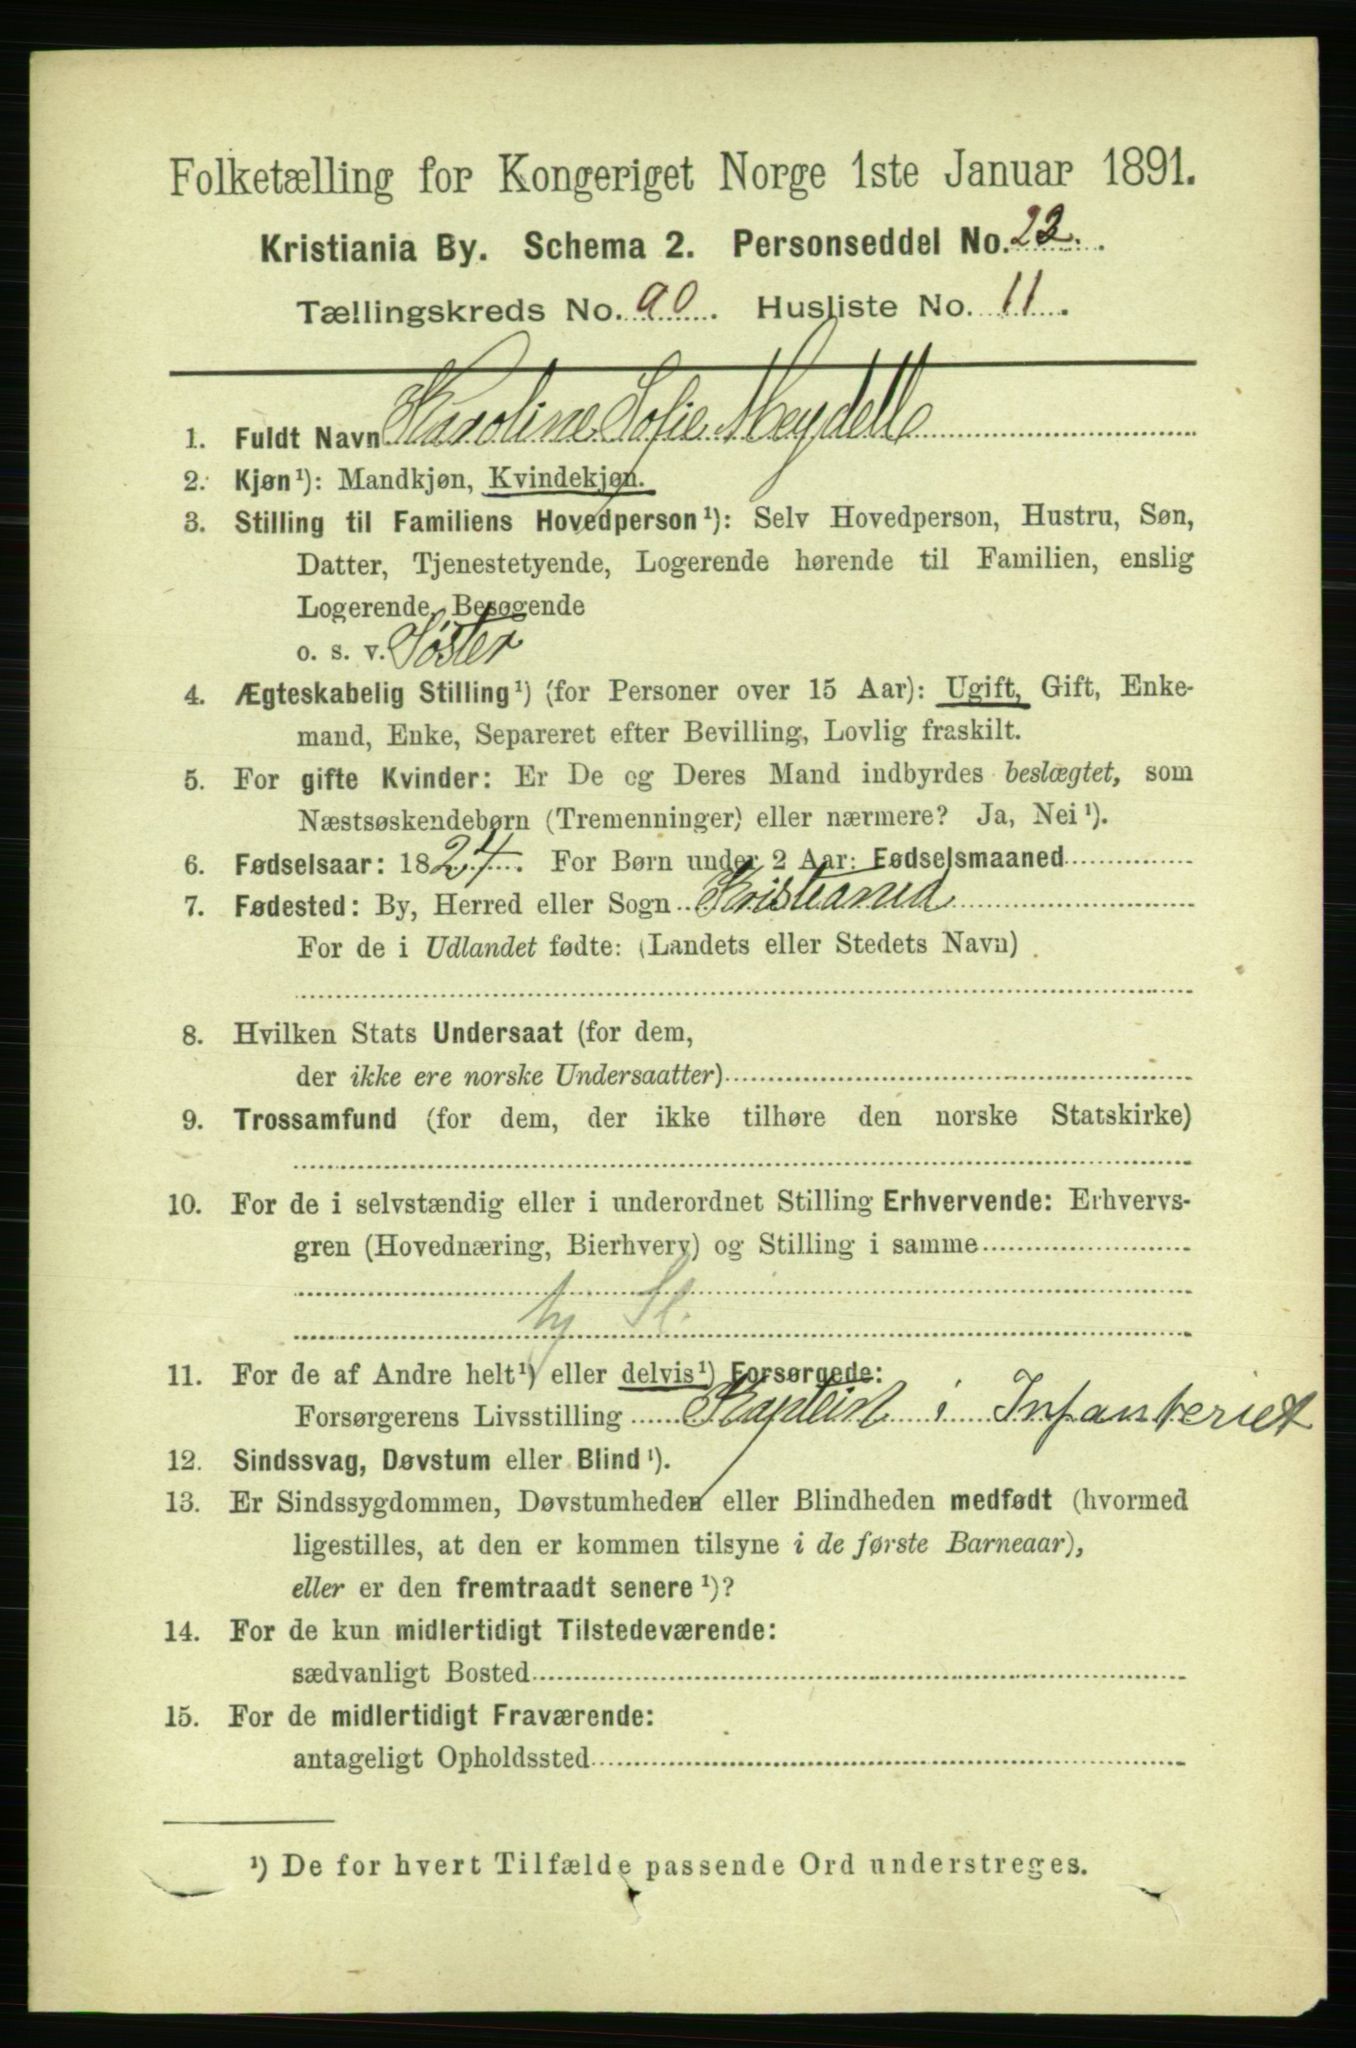 Folketælling for Kongeriget Norge 1ste Januar 1891.
Kristiania By. Schema 2. Personseddel No. 23.
Tællingskreds No. 90. Husliste No. 11.
1. Fuldt Navn Karoline Sofie Meydell
2. Kjøn¹): Mandkjøn, Kvindekjøn.
3. Stilling til Familiens Hovedperson¹): Selv Hovedperson, Hustru, Søn,
Datter, Tjenestetyende, Logerende hørende til Familien, enslig
Logerende, Besøgende
o. s. v. Søster
4. Ægteskabelig Stilling¹) (for Personer over 15 Aar): Ugift, Gift, Enke-
mand, Enke, Separeret efter Bevilling, Lovlig fraskilt.
5. For gifte Kvinder: Er De og Deres Mand indbyrdes beslægtet, som
Næstsøskendebørn (Tremenninger) eller nærmere? Ja, Nei¹).
6. Fødselsaar: 1824. For Børn under 2 Aar: Fødselsmaaned
7. Fødested: By, Herred eller Sogn Kristiania
For de i Udlandet fødte: (Landets eller Stedets Navn)
8. Hvilken Stats Undersaat (for dem,
der ikke ere norske Undersaatter)
9. Trossamfund (for dem, der ikke tilhøre den norske Statskirke)
10. For de i selvstændig eller i underordnet Stilling Erhvervende: Erhvervs-
gren (Hovednæring, Bierhverv) og Stilling i samme
11. For de af Andre helt¹) eller delvis¹) Forsørgede:
Forsørgerens Livsstilling Kaptein i Infanteriet
12. Sindssvag, Døvstum eller Blind¹).
13. Er Sindssygdommen, Døvstumheden eller Blindheden medfødt (hvormed
ligestilles, at den er kommen tilsyne i de første Barneaar),
eller er den fremtraadt senere¹)?
14. For de kun midlertidigt Tilstedeværende:
sædvanligt Bosted
15. For de midlertidigt Fraværende:
antageligt Opholdssted
¹) De for hvert Tilfælde passende Ord understreges.